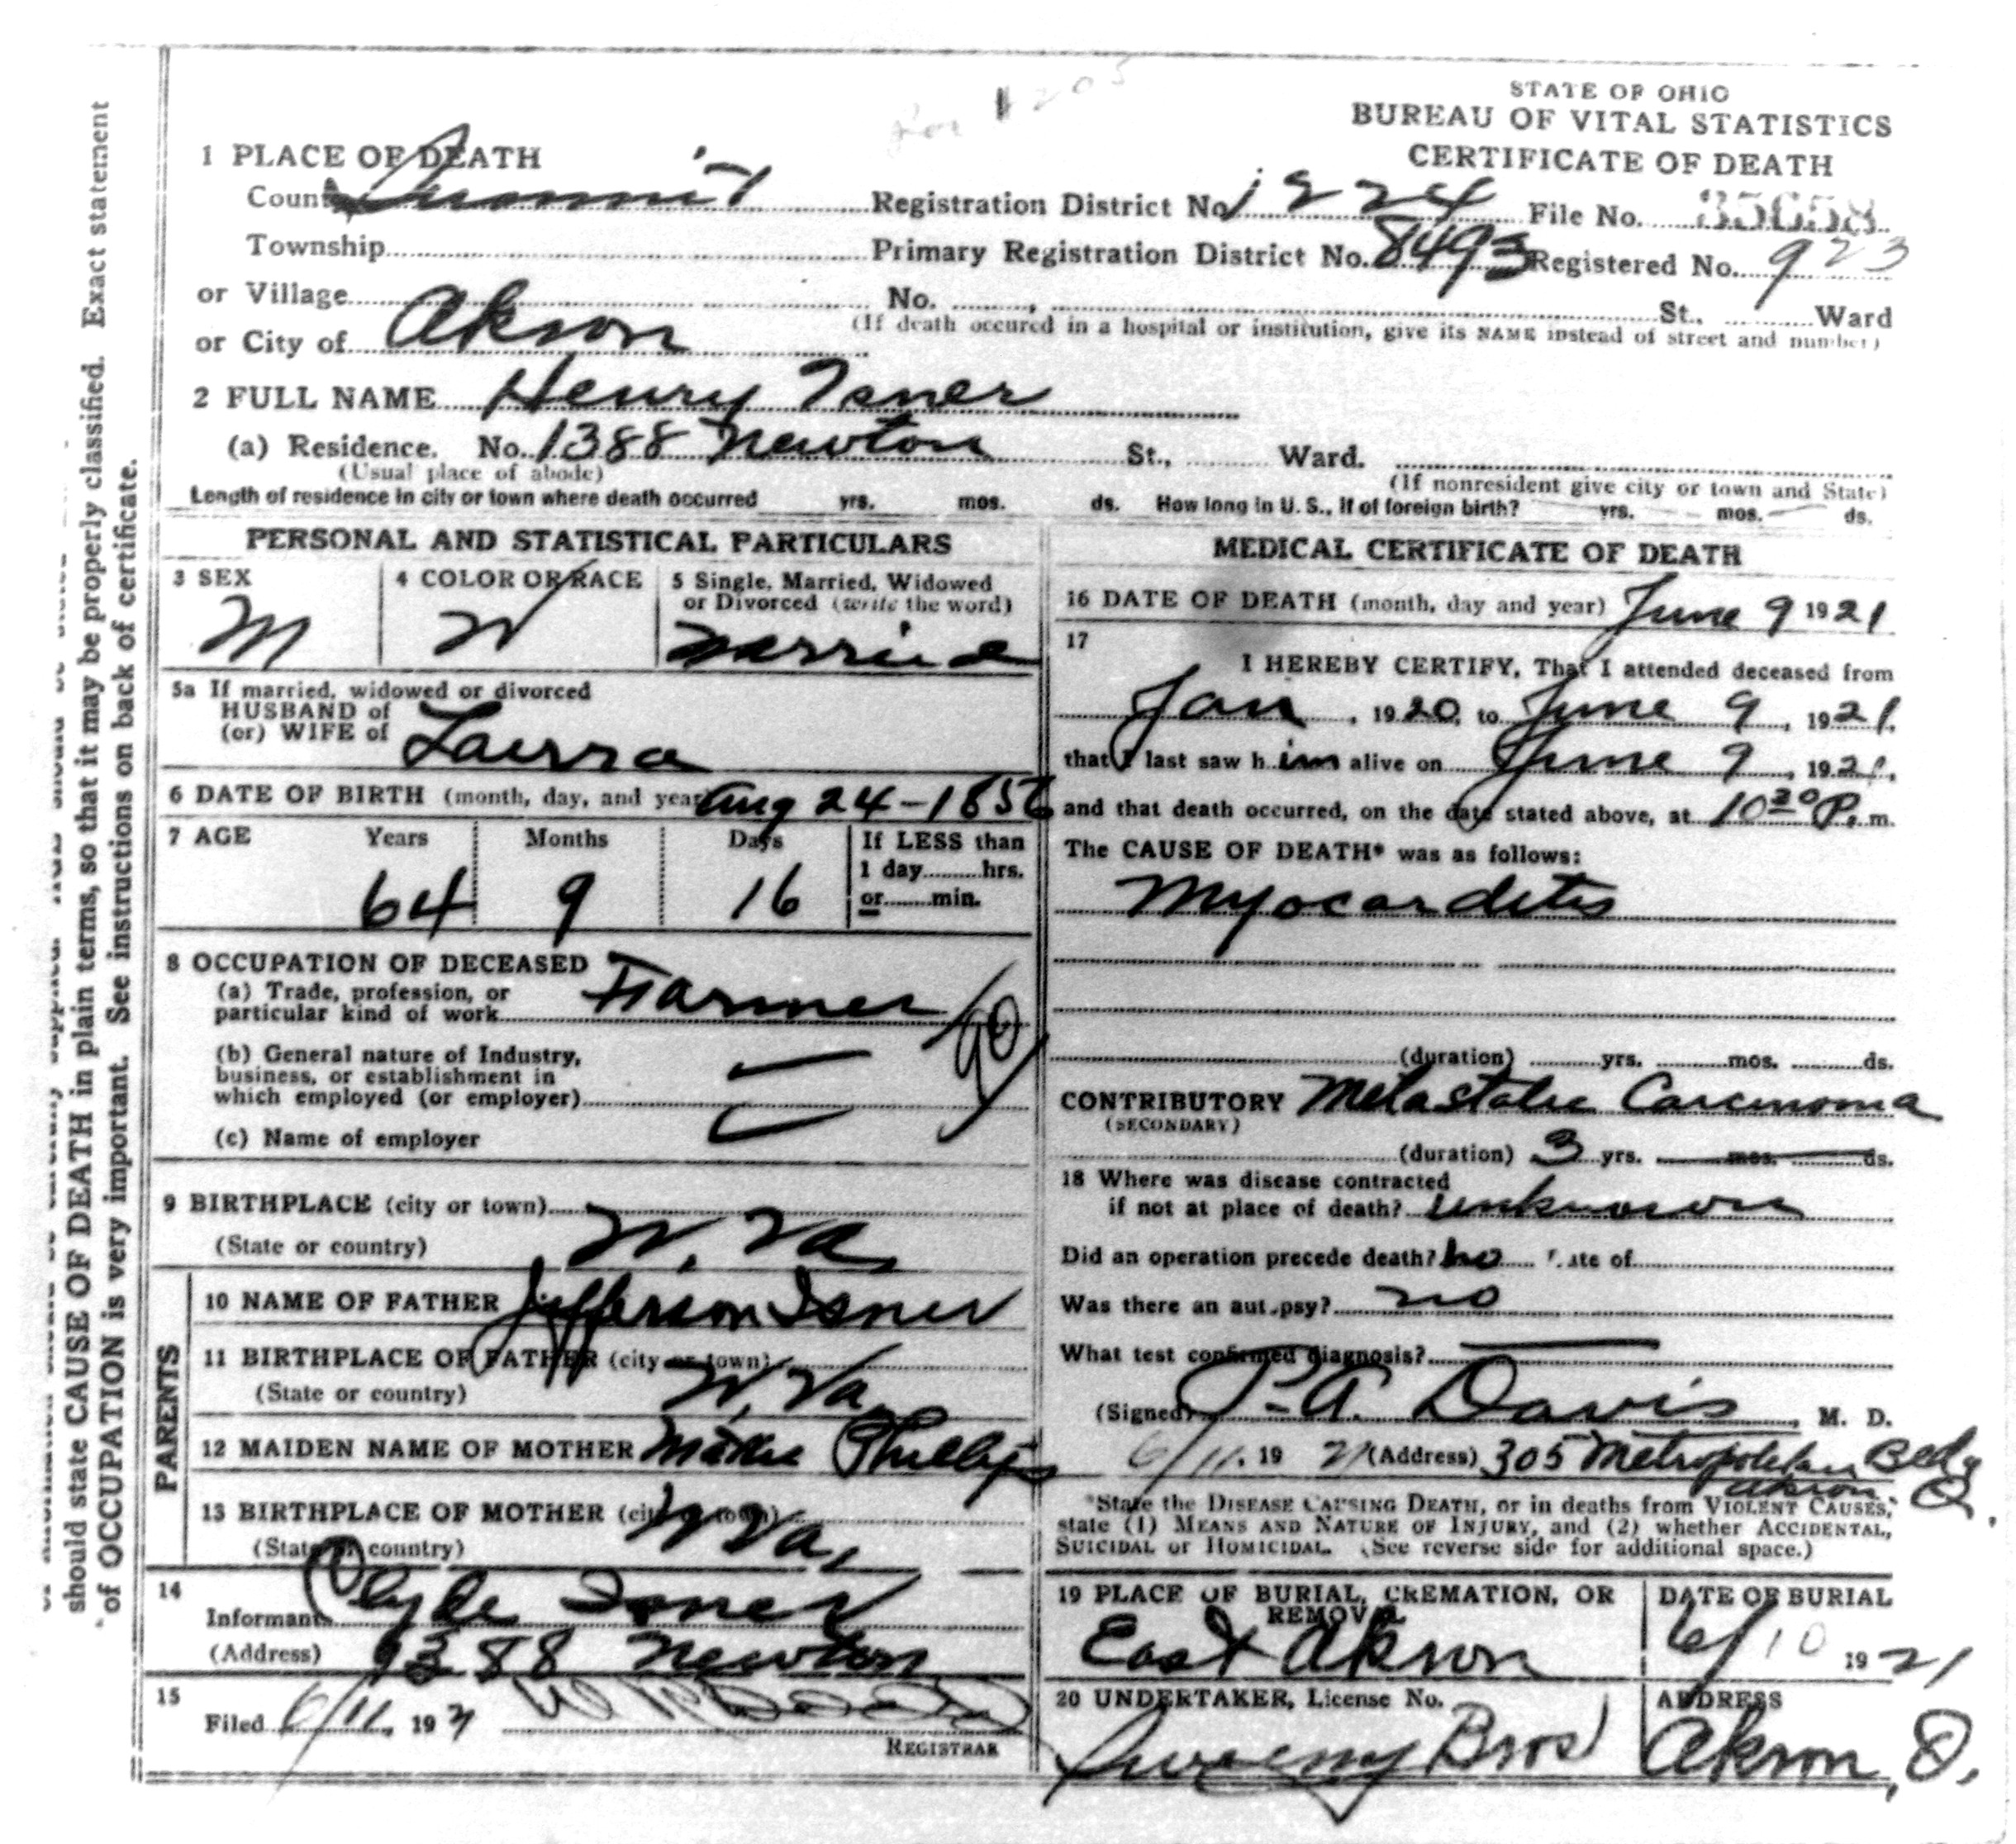 STATE OF OHIO
BUREAU OF VITAL STATISTICS
CERTIFICATE OF DEATH
1 PLACE OF DEATH
County Summit Registration District No. 1224 File No. 35658
Township Primary Registration District No. 8493 Registered No. 923
or Village No. , St., Ward
(If death occured in a hospital or institution, give its NAME instead of street and number)
or City of Akron
2 FULL NAME Henry Isner
(a) Residence. No. 1388 Newton St., Ward.
(Usual place of abode) (If nonresident give city or town and State)
Length of residence in city or town where death occurred yrs. mos. ds. How long in U. S., if of foreign birth? yrs. mos. ds.
PERSONAL AND STATISTICAL PARTICULARS
3 SEX M
4 COLOR OR RACE W
5 Single, Married, Widowed
or Divorced (write the word)
Married
5a If married, widowed or divorced
HUSBAND of
(or) WIFE of Laura
6 DATE OF BIRTH (month, day, and year) Aug 24-1856
7 AGE Years Months Days If LESS than
1 day hrs.
64 9 16 or min.
8 OCCUPATION OF DECEASED
(a) Trade, profession, or
particular kind of work Farmer
(b) General nature of Industry,
business, or establishment in
which employed (or employer)
(c) Name of employer
9 BIRTHPLACE (city or town)
(State or country) W. Va.
PARENTS
10 NAME OF FATHER Jefferson Isner
11 BIRTHPLACE OF FATHER (city or town)
(State or country) W. Va.
12 MAIDEN NAME OF MOTHER Phillips
13 BIRTHPLACE OF MOTHER (city or town)
(State or country) W Va.
14
Informant Clyde Isner
(Address) 1388 Newton
15
Filed 6/11, 1921
REGISTRAR
MEDICAL CERTIFICATE OF DEATH
16 DATE OF DEATH (month, day and year) June 9 1921
17
I HEREBY CERTIFY, That I attended deceased from
Jan , 1920, to June 9, 1921,
that I last saw him alive on June 9, 1921,
and that death occurred, on the date stated above, at 10 30 P. m.
The CAUSE OF DEATH* was as follows:
Myocarditis
(duration) yrs. mos. ds.
CONTRIBUTORY Metastatic Carcinoma
(SECONDARY)
(duration) 3 yrs. mos. ds.
18 Where was disease contracted
if not at place of death? unknown
Did an operation precede death? no Date of
Was there an autopsy? no
What test confirmed diagnosis?
(Signed) A. Davis, M. D.
6/11, 1921 (Address) 305 Metropolitan Bldg
Akron O.
*State the DISEASE CAUSING DEATH, or in deaths from VIOLENT CAUSES,
state (1) MEANS AND NATURE OF INJURY, and (2) whether ACCIDENTAL,
SUICIDAL or HOMICIDAL. (See reverse side for additional space.)
19 PLACE OF BURIAL, CREMATION, OR
REMOVAL
East Akron
DATE OF BURIAL
6/10 1921
20 UNDERTAKER, License No.
Sweeny Bros
ADDRESS
Akron, O.
should state CAUSE OF DEATH in plain terms, so that it may be properly classified. Exact statement
of OCCUPATION is very important. See instructions on back of certificate.